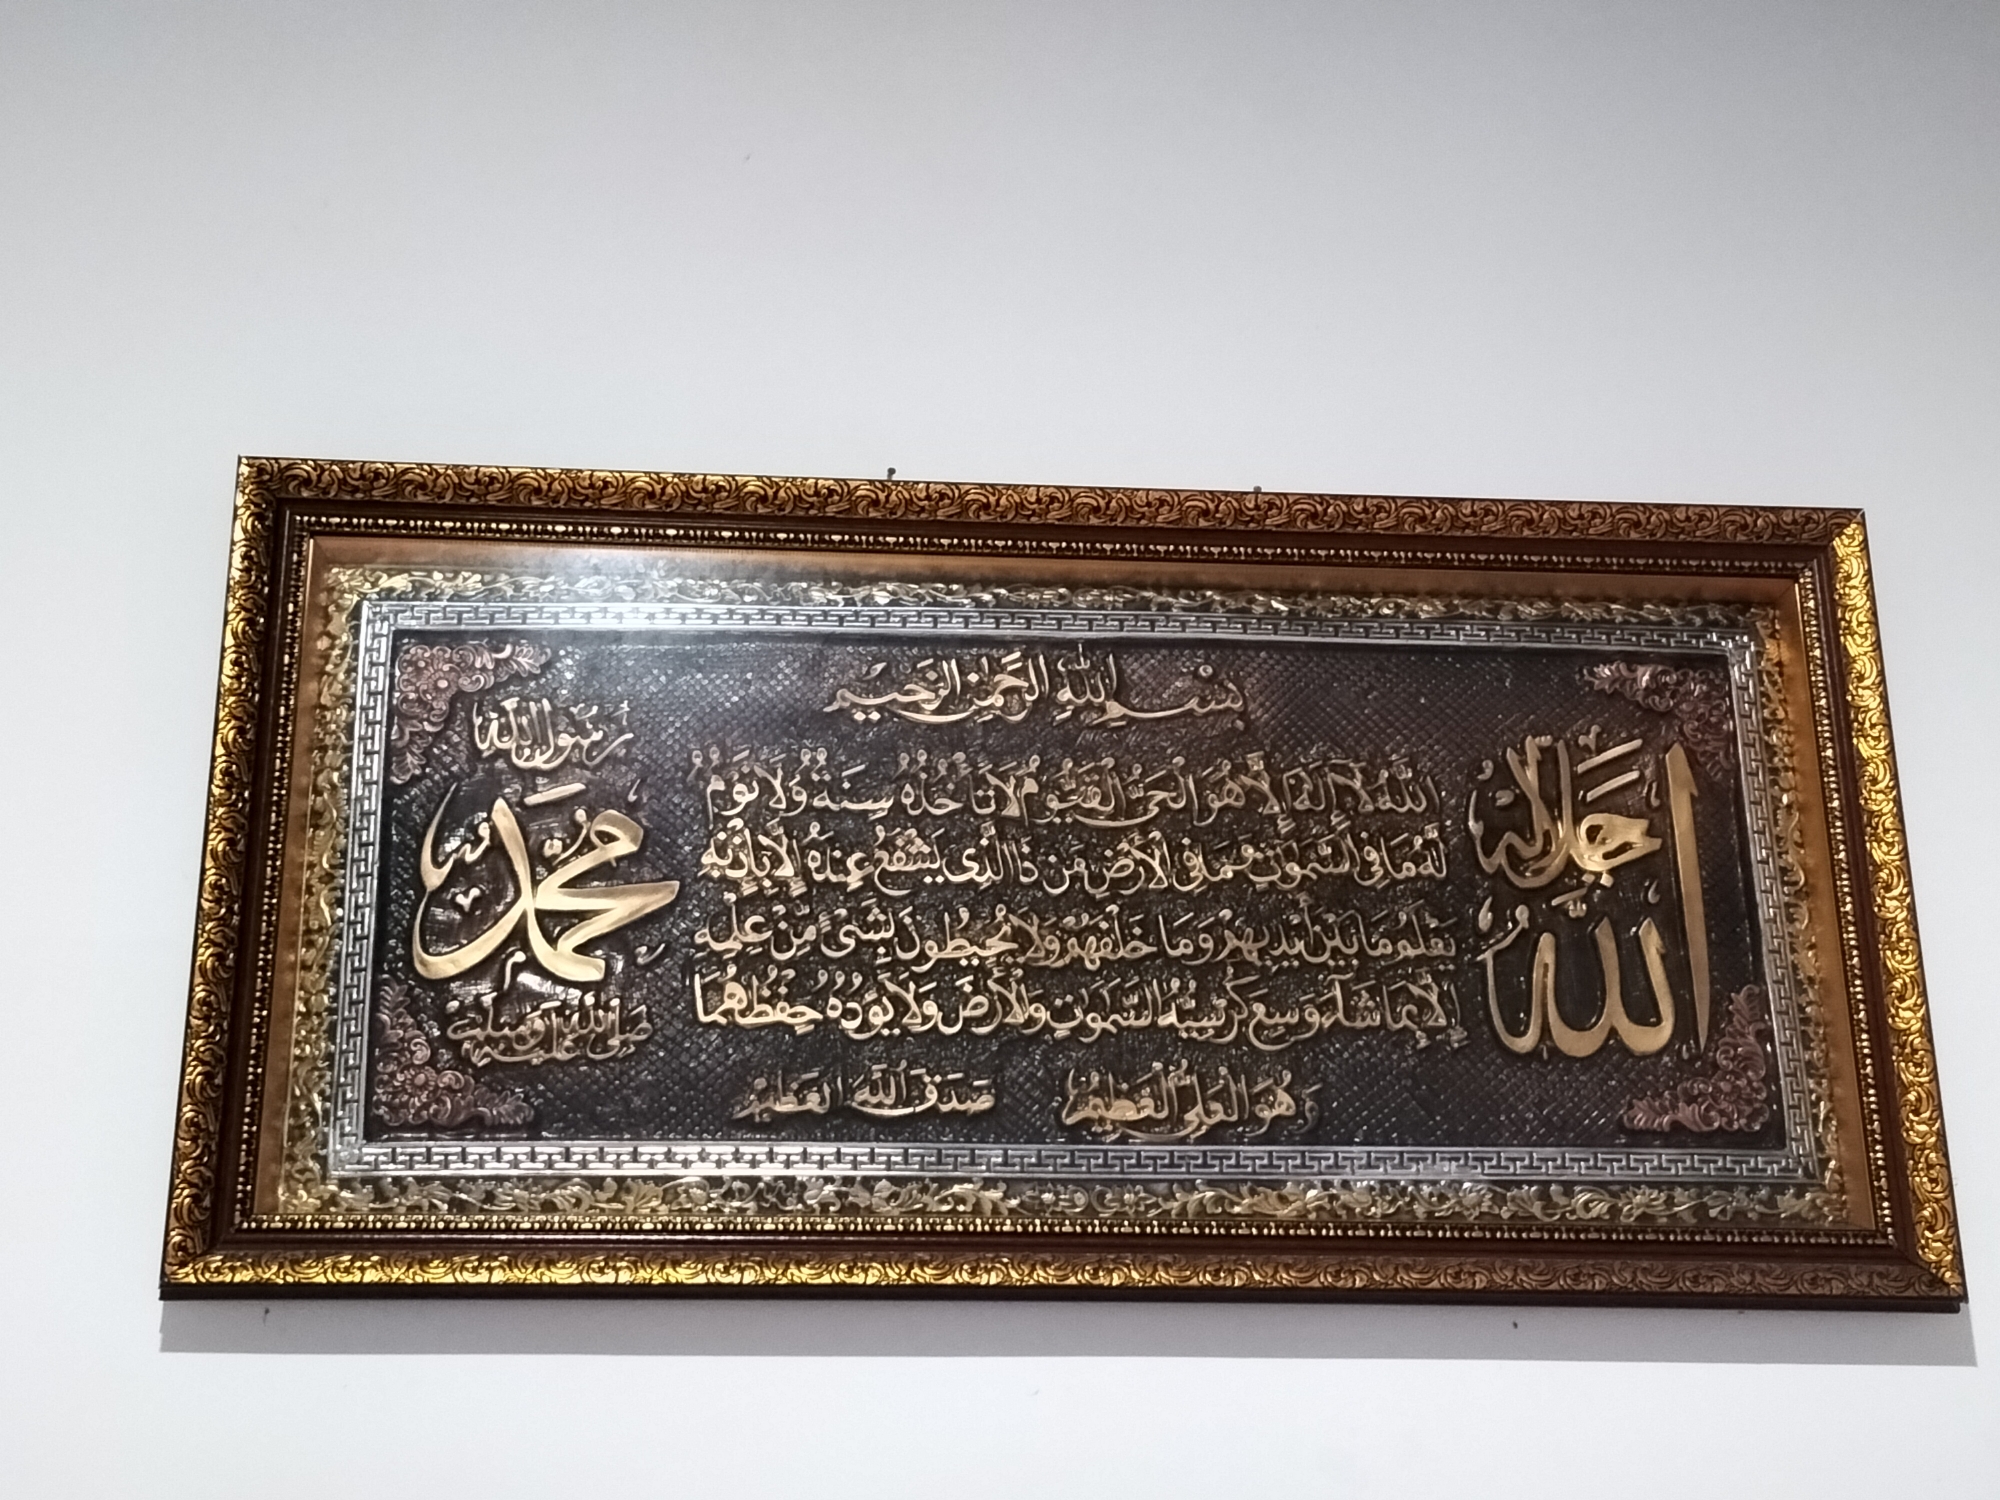 بِسْمِ اللهِ الرَّحْمٰنِ الرَّحِيْمِ
اللّٰهُ لَآ اِلٰهَ اِلَّا هُوَ الْحَيُّ الْقَيُّوْمُ لَا تَأْخُذُهُ سِنَةٌ وَّلَا نَوْمٌ
لَهُ مَا فِى السَّمٰوٰتِ وَمَا فِى الْاَرْضِ مَنْ ذَا الَّذِى يَشْفَعُ عِنْدَهُ اِلَّا بِاِذْنِهِ
يَعْلَمُ مَا بَيْنَ اَيْدِيْهِمْ وَمَا خَلْفَهُمْ وَلَا يُحِيْطُوْنَ بِشَىْءٍ مِّنْ عِلْمِهِ
اِلَّا بِمَا شَآءَ وَسِعَ كُرْسِيُّهُ السَّمٰوٰتِ وَالْاَرْضَ وَلَا يَؤُدُهُ حِفْظُهُمَا
وَهُوَ الْعَلِىُّ الْعَظِيْمُ صَدَقَ اللهُ الْعَظِيْمُ
اللّٰه
جَلَّ جَلَالُهُ
رَسُوْلُ اللهِ
مُحَمَّد
صَلَّى اللهُ عَلَيْهِ وَسَلَّمَ